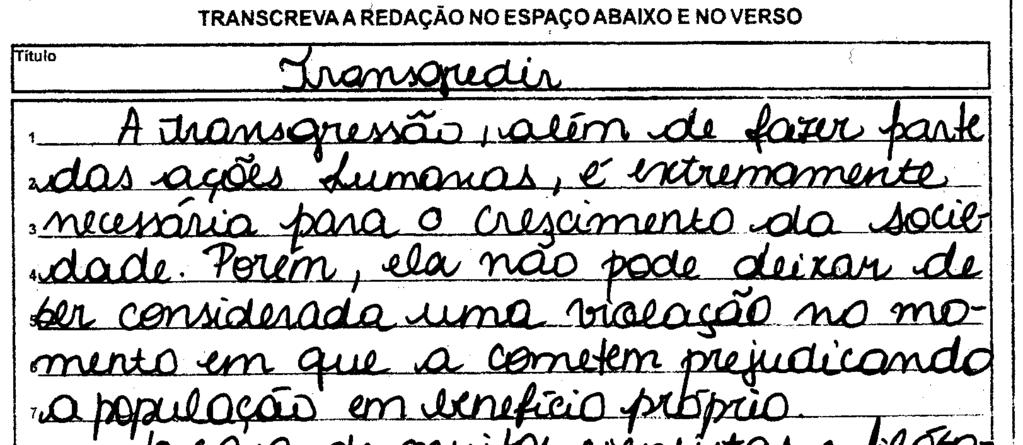 TRANSCREVA A REDAÇÃO NO ESPAÇO ABAIXO E NO VERSO
Título
Transgredir
1 A transgressão, além de fazer parte
2 das ações humanas, é extremamente
3 necessária para o crescimento da socie-
4 dade. Porém, ela não pode deixar de
5 ser considerada uma violação no mo-
6 mento em que a cometem prejudicando
7 a população em benefício próprio.